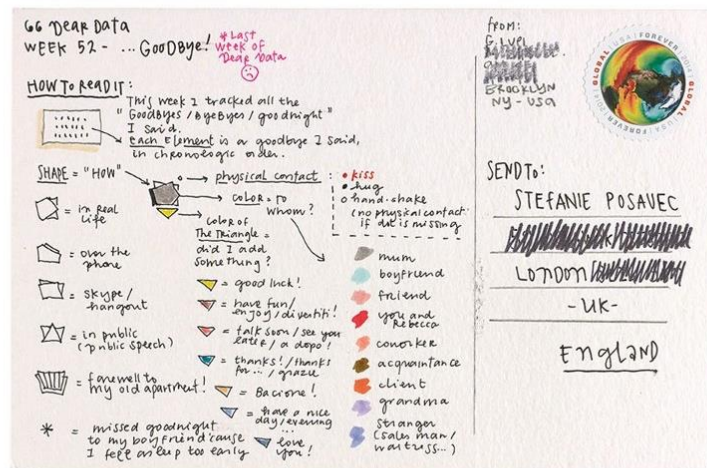 GG DEAR DATA
WEEK 52 - ... GOODBYE!
* LAST
WEEK OF
DEAR DATA
HOW TO READ IT:
This week I tracked all the
"GOODBYES / BYEBYES / goodnight"
I said.
each Element is a goodbye I said,
in chronologic order.
SHAPE = "HOW"
= in real
life
= over the
phone
= skype/
hangout
= in public
(public speech)
= farewell to
my old apartment!
* = missed goodnight
to my boyfriend 'cause
I fell asleep too early
physical contact:
kiss
hug
hand-shake
(no physical contact
if dot is missing
COLOR = TO
WHOM?
COLOR OF
THE TRIANGLE =
did I add
something?
= good luck!
= have fun/
enjoy / divertiti!
= talk soon/see you
later / a dopo!
= thanks!/thanks
for.../grazie
= Bacione!
= have a nice
day/evening
= love
you!
mum
boyfriend
friend
you and
Rebecca
coworker
acquaintance
client
grandma
stranger
(sales man/
waitress...)
FROM:
G. LUPI
BROOKLYN
NY - USA
GLOBAL USA FOREVER
SEND TO:
STEFANIE POSAVEC
LONDON
-UK-
ENGLAND